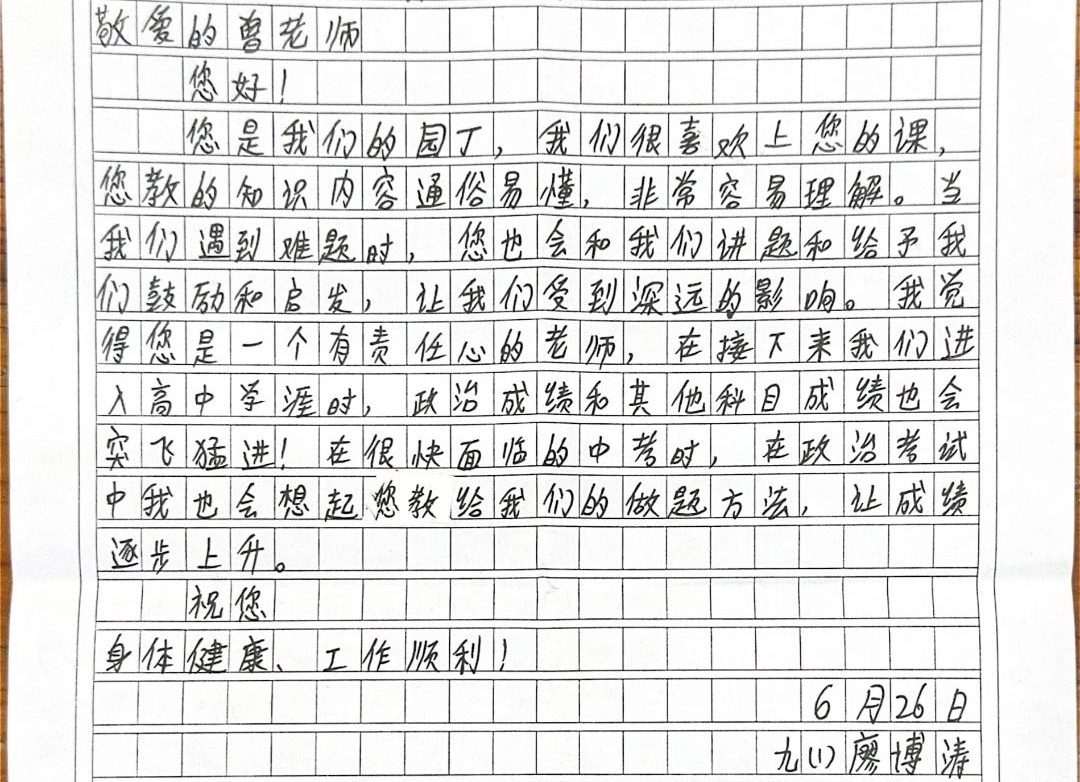 敬爱的曾老师
您好!
您是我们的园丁，我们很喜欢上您的课，
您教的知识内容通俗易懂，非常容易理解。当
我们遇到难题时，您也会和我们讲题和给予我
们鼓励和启发，让我们受到深远的影响。我觉
得您是一个有责任心的老师，在接下来我们进
入高中学涯时，政治成绩和其他科目成绩也会
突飞猛进!在很快面临的中考时，在政治考试
中我也会想起您教给我们的做题方法，让成绩
逐步上升。
祝您
身体健康、工作顺利!
6月26日
九(1)廖博涛